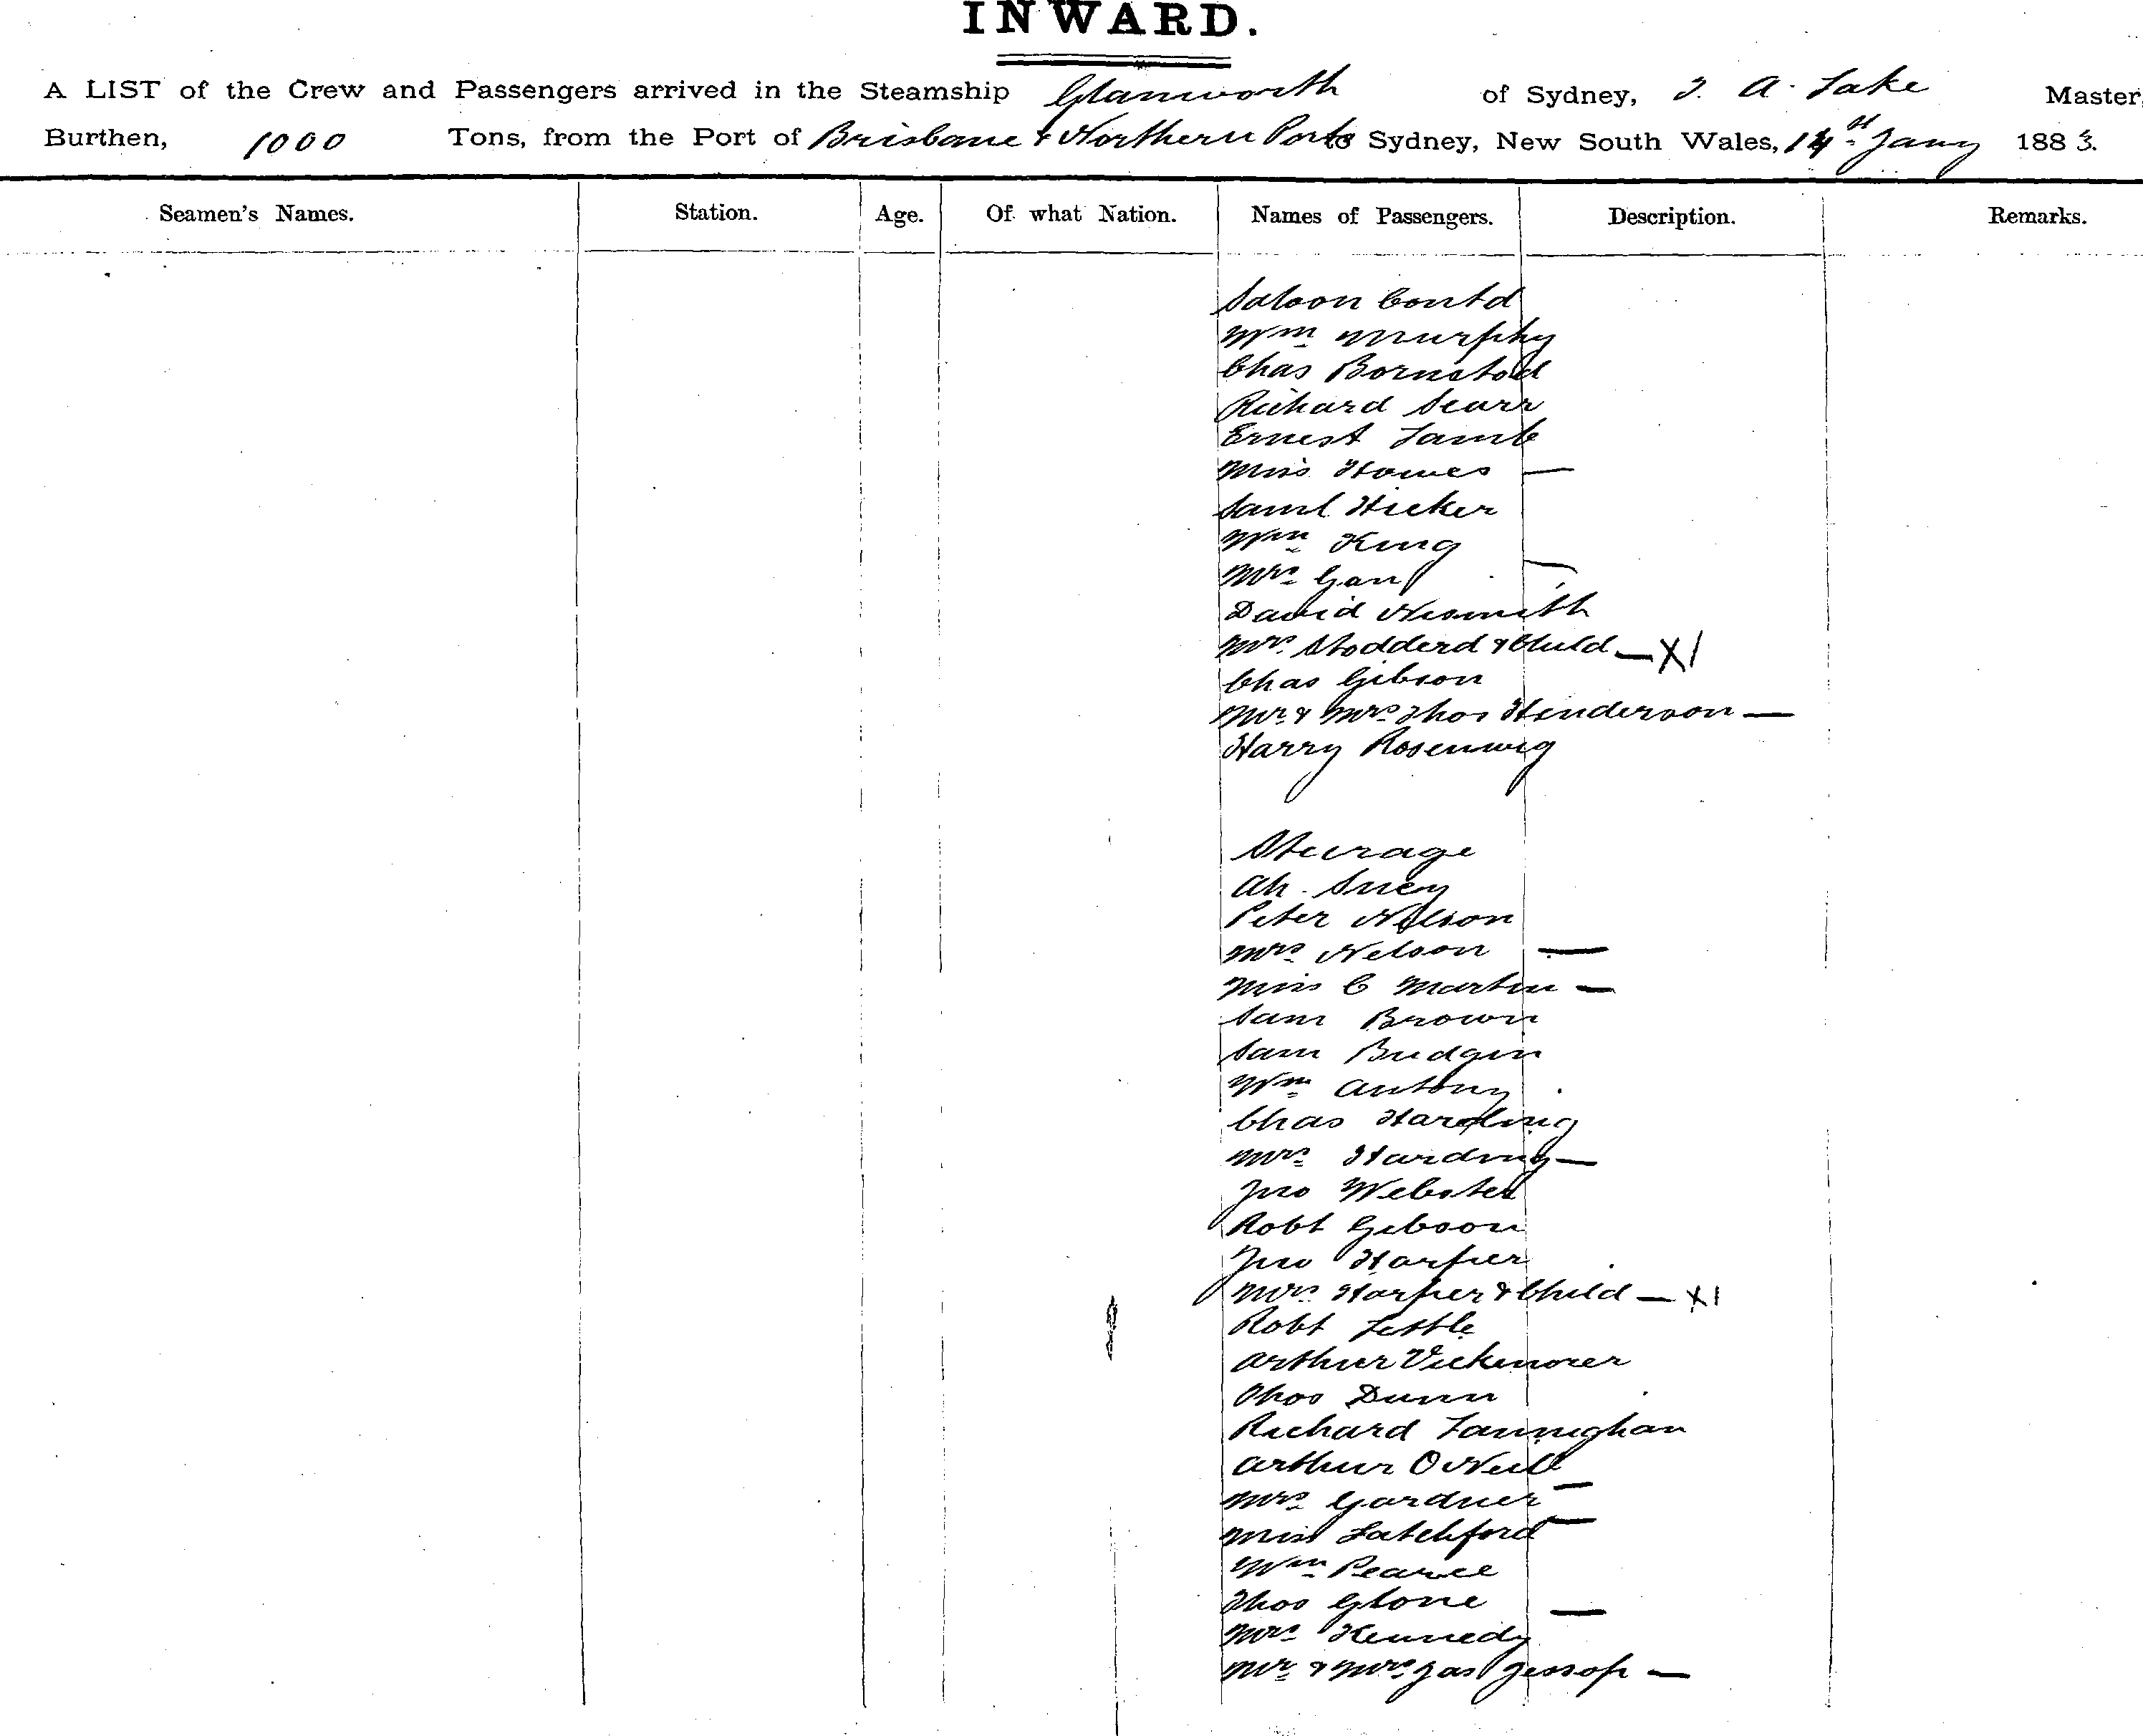 INWARD.
A LIST of the Crew and Passengers arrived in the Steamship Glamworth of Sydney, J. A. Lake Master,
Burthen, 1000 Tons, from the Port of Brisbane & Northern Ports Sydney, New South Wales, 14th Jany 1883.
Seamen's Names. Station. Age. Of what Nation. Names of Passengers. Description. Remarks.
Saloon Contd
Wm Murphy
Chas
Richard Scarr
Ernest Lamb
Miss Howes —
Saml Hicker
Wm King
Mrs —
David Nesmith
Mrs Stodderd & Child — X1
Chas Gibson
Mr & Mrs Thos Henderson —
Harry Rosenwig
Steerage
Ah. Suey
Peter Nelson
Mrs Nelson —
Miss C Martin —
Sam Brown
Sam Budgin
Wm Antony
Chas Harding
Mrs Harding —
Jno Webster
Robt Gibson
Jno Harper
Mrs Harper & Child — X1
Robt
Arthur
Thos Dunn
Richard
Arthur O Neill
Mrs Gardner —
Miss Latchford —
Wm Pearce
Thos Glone
Mrs Kennedy —
Mr & Mrs Jas Jessop —